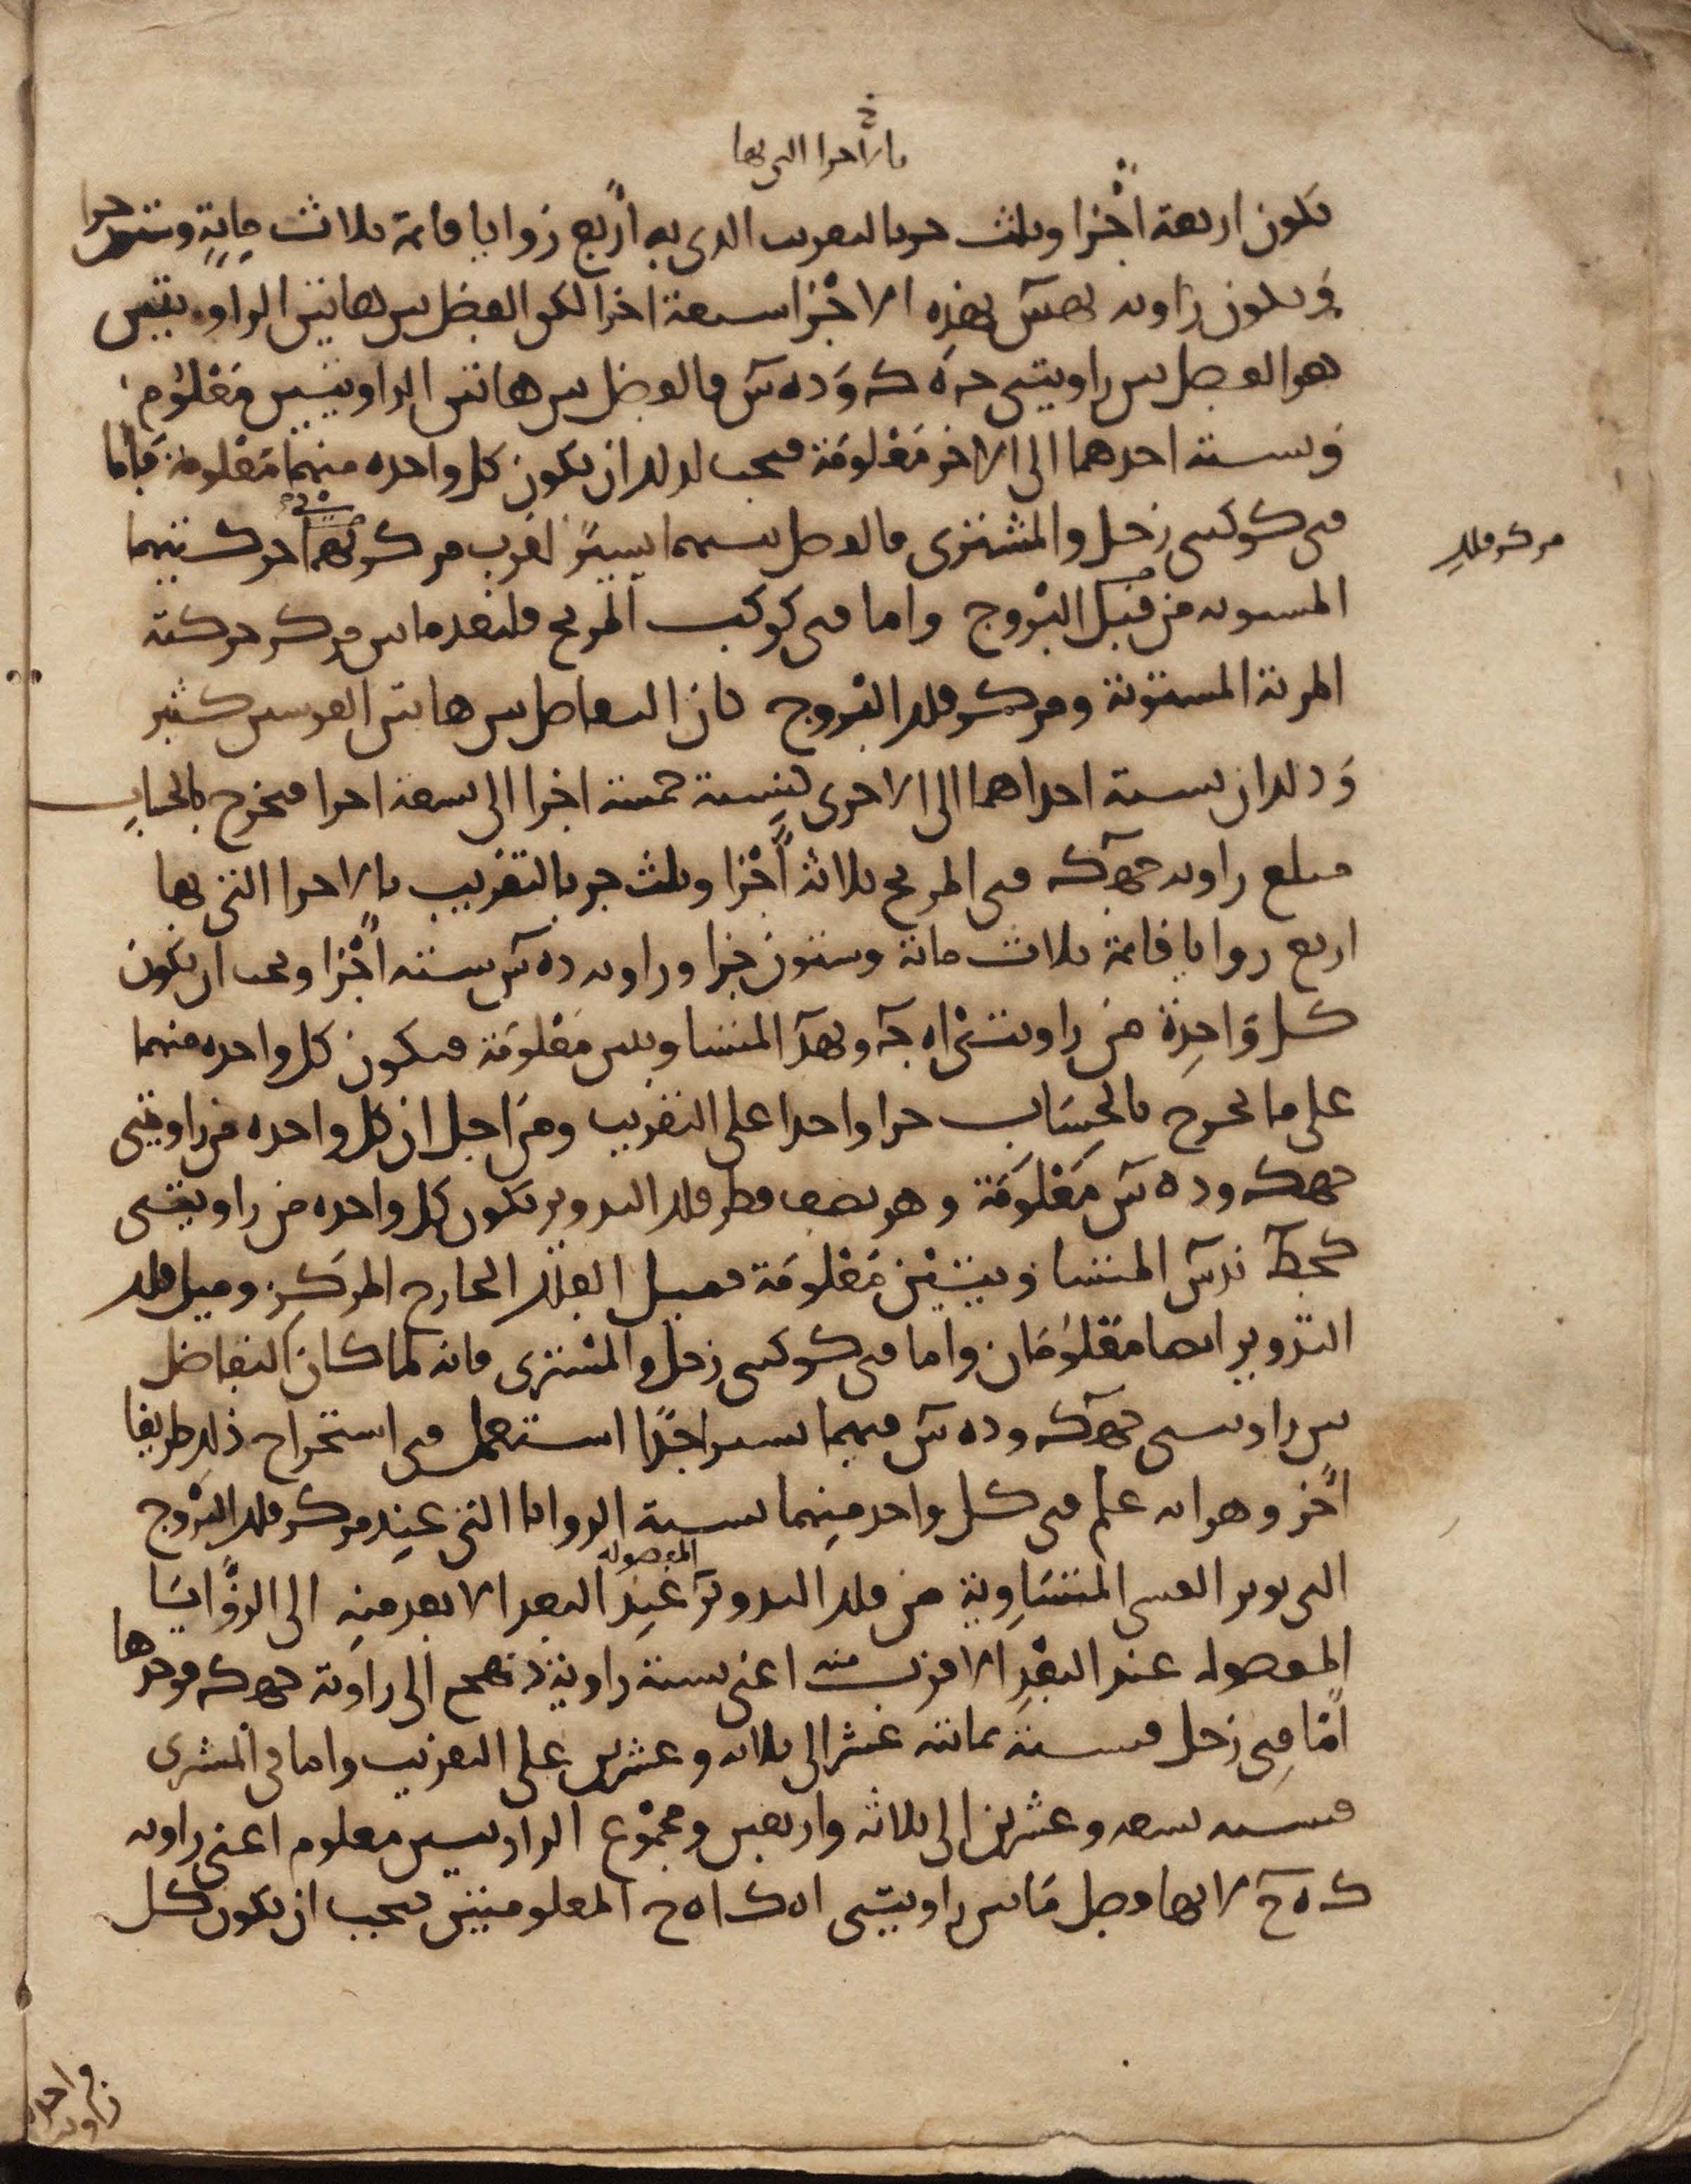 بالاجزا التى بها
تكون اربعة اجزا وثلث جزبالتقريب الذى به اربع زوايا قائمة ثلاث ماية وستون جزا
وتكون زاوية بهذه الاجزا سبعة اجزا لكن الفضل بين هاتين الزاويتين
هو الفضل بين زاويتى ح ه ك و د ه س فالفضل بين هاتين الزاويتين معلوم
ونسبة احدهما الى الاخر معلومة فيجب لذلك ان يكون كل واحده منهما معلومة فاما
فى كوكبى زحل والمشترى فالفضل بينهما يسير لقرب مركز حركتيهما
مركز فلك
المستوية من قبل البروج واما فى كوكب المريخ فلبعد ما بين مركز حركته
المرية المستوية ومركز فلك البروج كان التفاضل بين هاتين القوسين كثير
وذلك ان نسبة احداهما الى الاخرى كنسبة خمسة اجزا الى تسعة اجزا فيخرج بالحساب
مبلغ زاوية ح ه ك فى المريخ ثلاثة اجزا وثلث جز بالتقريب بالاجزا التى بها
اربع زوايا قائمة ثلاث مائة وستون جزا وزاوية د ه س ستة اجزا ويجب ان يكون
كل واحدة من زاويتى ا ه ج و ب ه د المتساويتين معلومة فيكون كل واحده منهما
على ما يخرج بالحساب جزا واحدا على التقريب ومن اجل ان كل واحده من زاويتى
ح ه ك و د ه س معلومة وهو نصف قطر فلك التدوير تكون كل واحده من زاويتى
المتساويتين معلومة فميل الفلك الخارج المركز وميل فلك
التدوير ايضا معلومان واما فى كوكبى زحل والمشترى فانه لما كان التفاضل
بين زاويتى ح ه ك و د ه س فيهما يسير اجدا استعمل فى استخراج ذلك طريقا
اخر وهو انه علم فى كل واحد منهما نسبة الزوايا التى عند مركز فلك البروج
التى يوتر القسى المتساوية من فلك التدوير المفصوله عند البعد الابعد منه الى الزوايا
المفصوله عند البعد الاقرب منه اعنى نسبة زاوية الى زاوية ح ه ك فوجدها
اما فى زحل فنسبة ثمانية عشر الى ثلاثه وعشرين على التقريب واما فى المشترى
فنسبه تسعه وعشرين الى ثلاثه واربعين ومجموع الزاويتين معلوم اعنى زاويه
ك ه ح لانها فضل ما بين زاويتى ا ه ك ا ه ح المعلومتين فيجب ان يكون كل